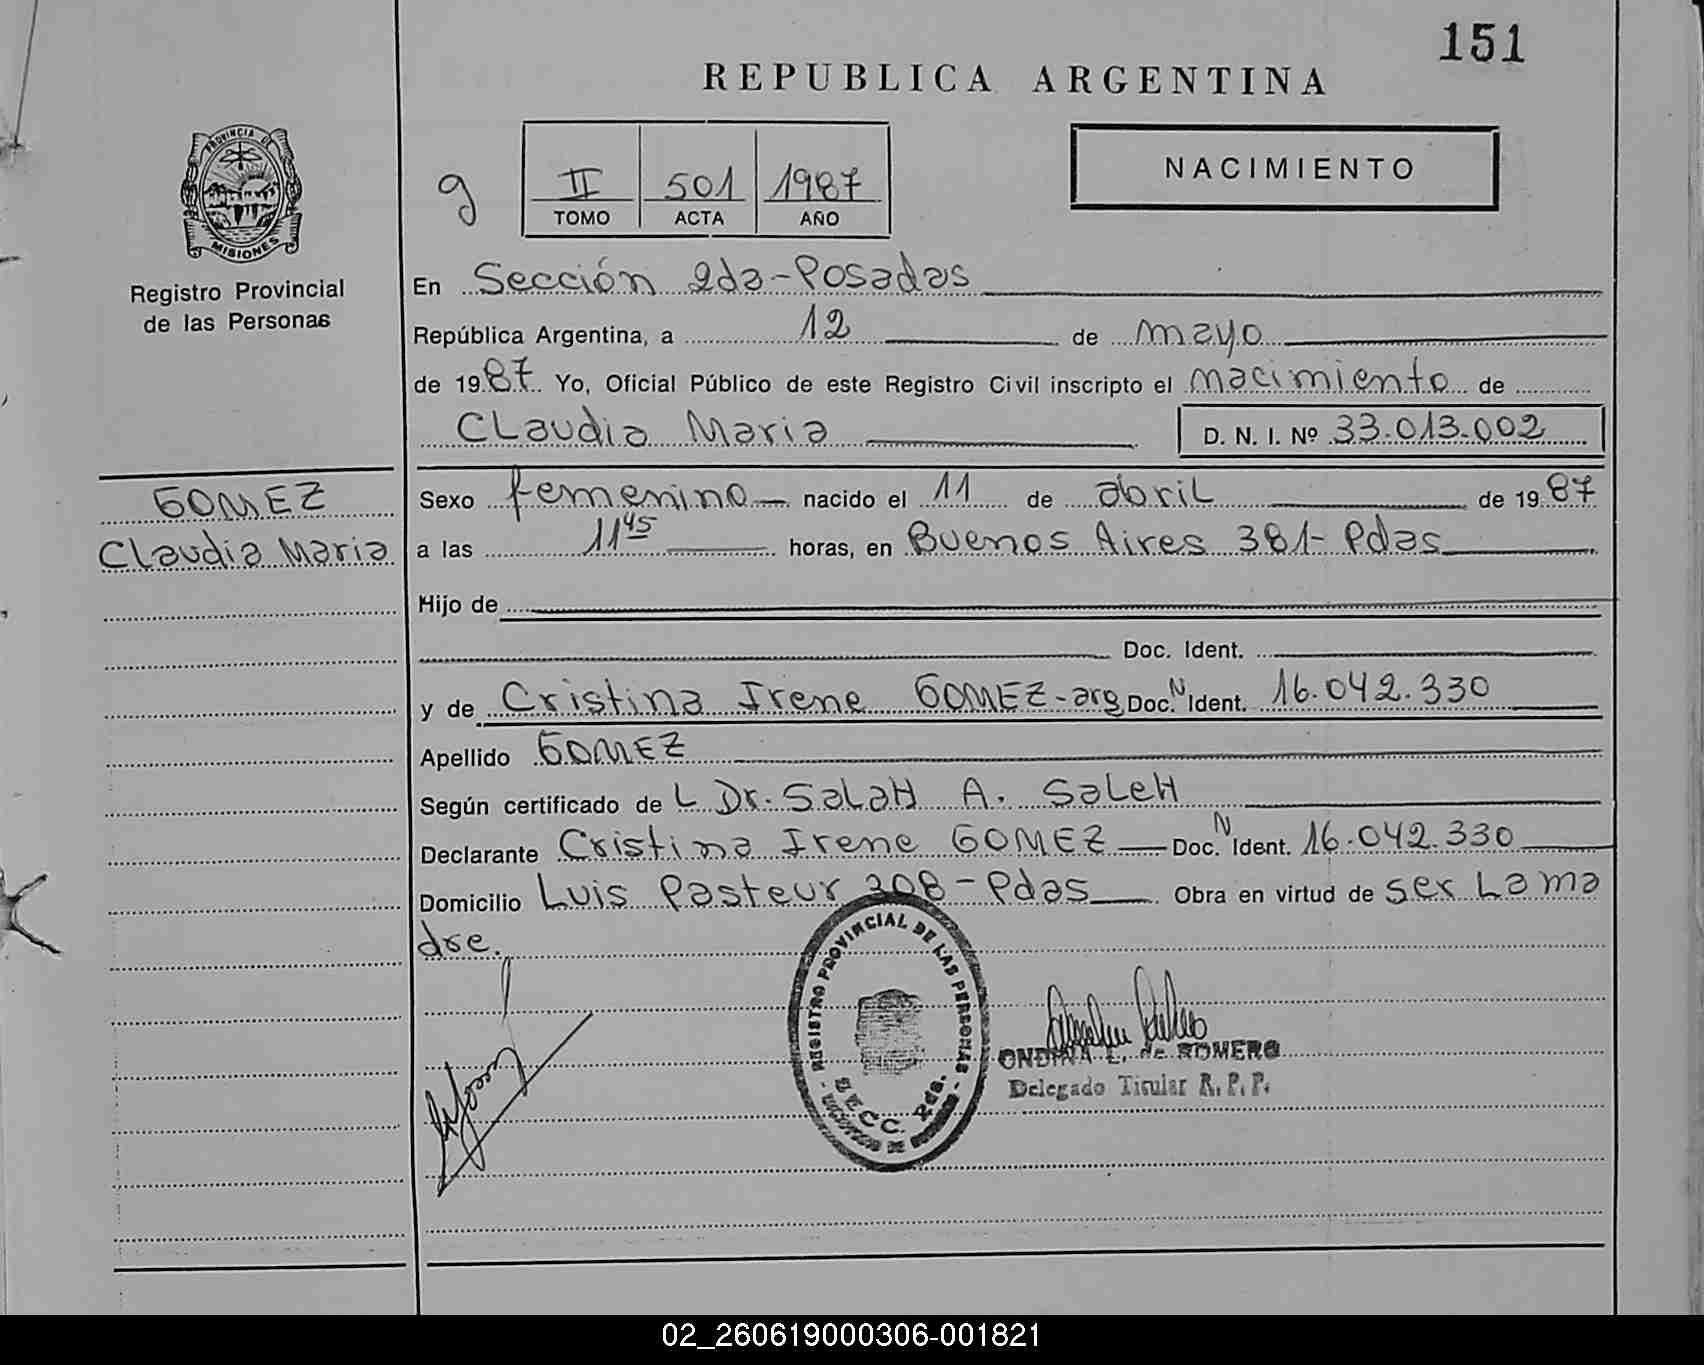 151
REPUBLICA ARGENTINA
PROVINCIA DE
MISIONES
Registro Provincial
de las Personas
g
II 501 1987
TOMO ACTA AÑO
NACIMIENTO
En Sección 2da-Posadas
República Argentina, a 12 de mayo
de 1987. Yo, Oficial Público de este Registro Civil inscripto el nacimiento de
Claudia Maria D. N. I. Nº 33.013.002
GOMEZ
Claudia Maria
Sexo femenino nacido el 11 de abril de 1987
a las 11 45 horas, en Buenos Aires 381- Pdas
Hijo de
Doc. Ident.
y de Cristina Irene GOMEZ-arg Doc. N Ident. 16.042.330
Apellido GOMEZ
Según certificado de L Dr. SaLaH A. SaLeH
Declarante Cristina Irene GOMEZ Doc. N Ident. 16.042.330
Domicilio Luis Pasteur 308-Pdas Obra en virtud de ser La ma
dre.
REGISTRO PROVINCIAL DE LAS PERSONAS
SECC. 2da.
ONDINA L. de ROMERO
Delegado Titular R. P. P.
02_260619000306-001821